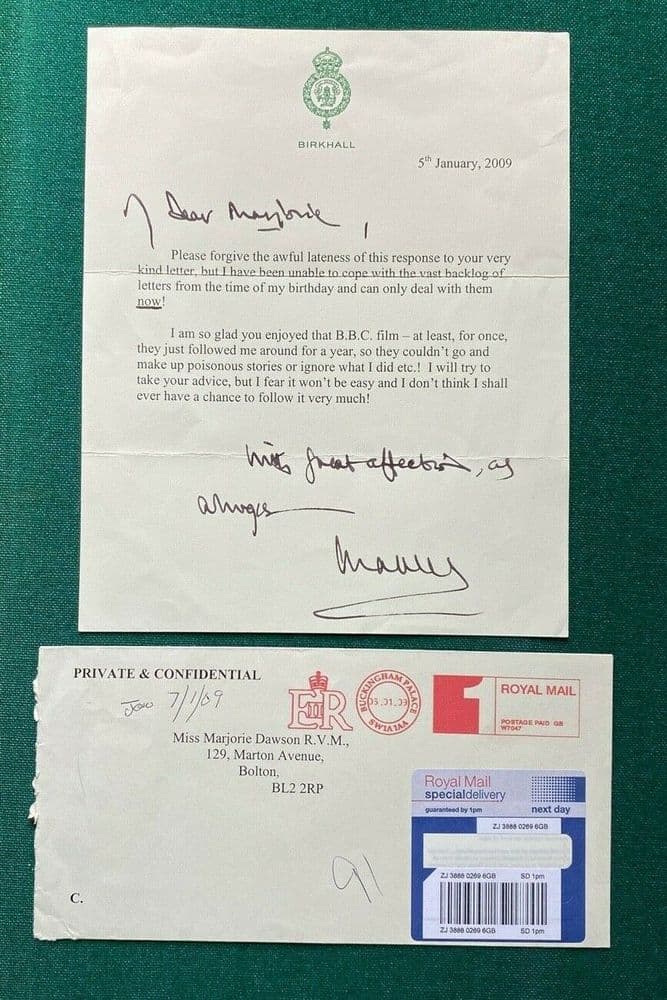 BIRKHALL
5th January, 2009
My Dear Marjorie,
Please forgive the awful lateness of this response to your very
kind letter, but I have been unable to cope with the vast backlog of
letters from the time of my birthday and can only deal with them
now!
I am so glad you enjoyed that B.B.C. film – at least, for once,
they just followed me around for a year, so they couldn't go and
make up poisonous stories or ignore what I did etc.! I will try to
take your advice, but I fear it won't be easy and I don't think I shall
ever have a chance to follow it very much!
With great affection, as
always
PRIVATE & CONFIDENTIAL
7/1/09
EIIR
BUCKINGHAM PALACE
05.01.09
SW1A1AA
1
ROYAL MAIL
POSTAGE PAID GB
W7047
Miss Marjorie Dawson R.V.M.,
129, Marton Avenue,
Bolton,
BL2 2RP
91
C.
Royal Mail
specialdelivery
guaranteed by 1pm
next day
ZJ 3888 0269 6GB
ZJ 3888 0269 6GB SD 1pm
ZJ 3888 0269 6GB SD 1pm